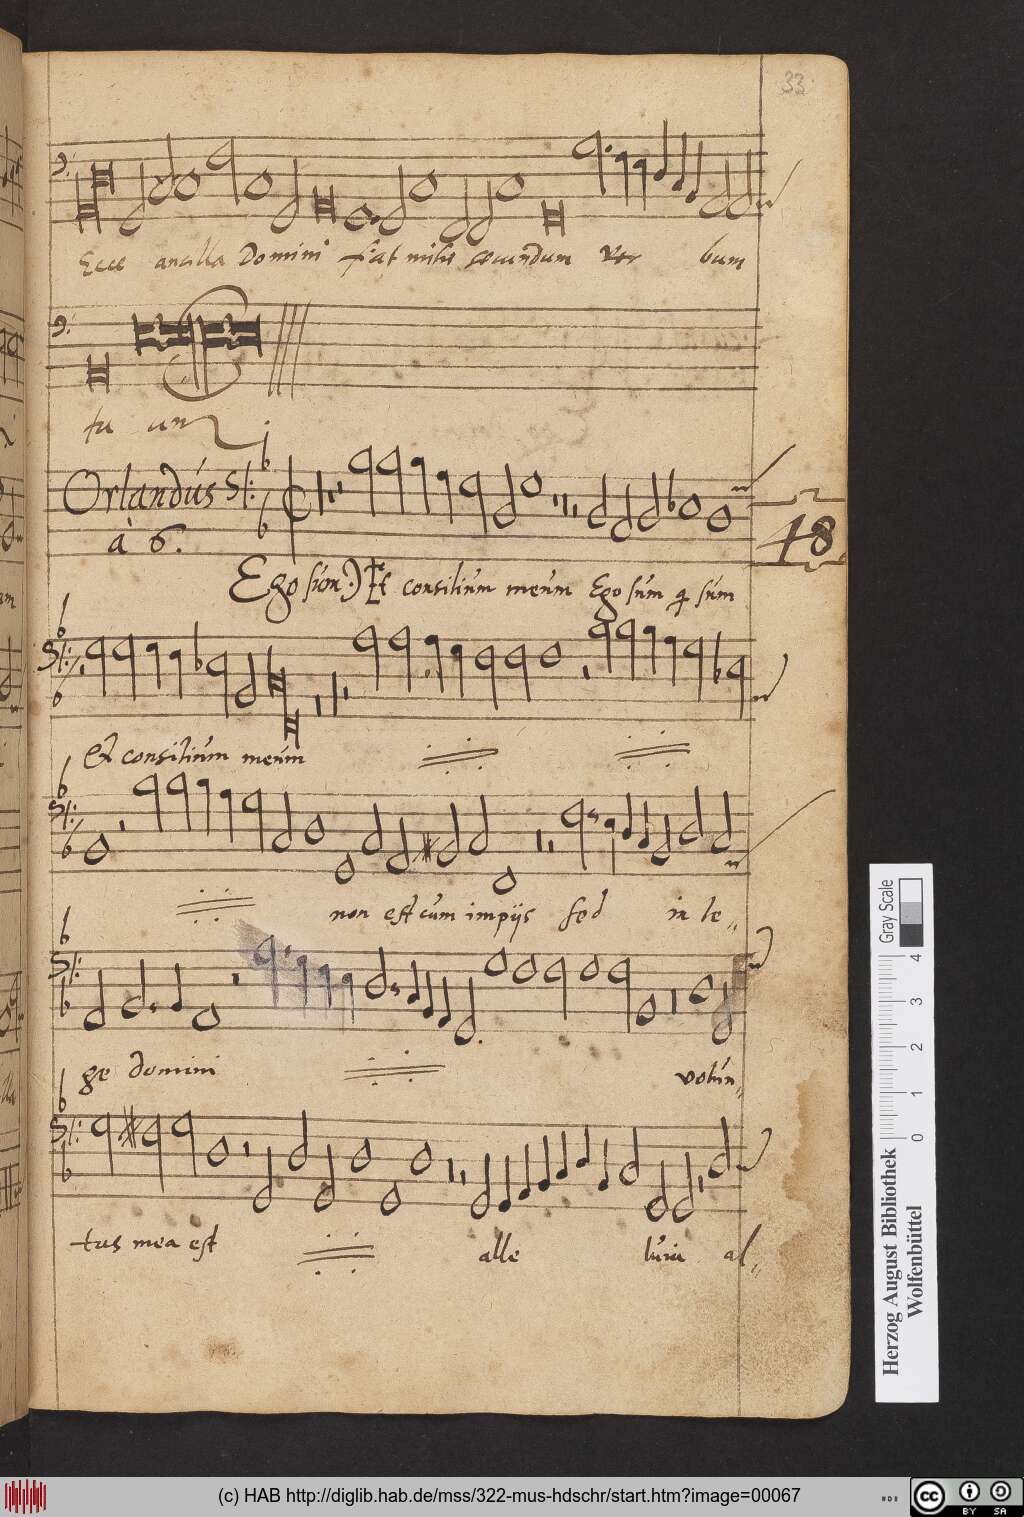 33
Ecce ancilla Domini fiat mihi secundum ver bum
tu um
Orlandús
à 6.
48
Ego súm Et consiliúm meúm Ego súm súm
Et consiliúm meúm
non est cúm impijs sed in le„
ge domini volún„
tas mea est alle lúia al„
Gray Scale
4
3
2
1
0
Herzog August Bibliothek
Wolfenbüttel
(c) HAB http://diglib.hab.de/mss/322-mus-hdschr/start.htm?image=00067
cc BY SA